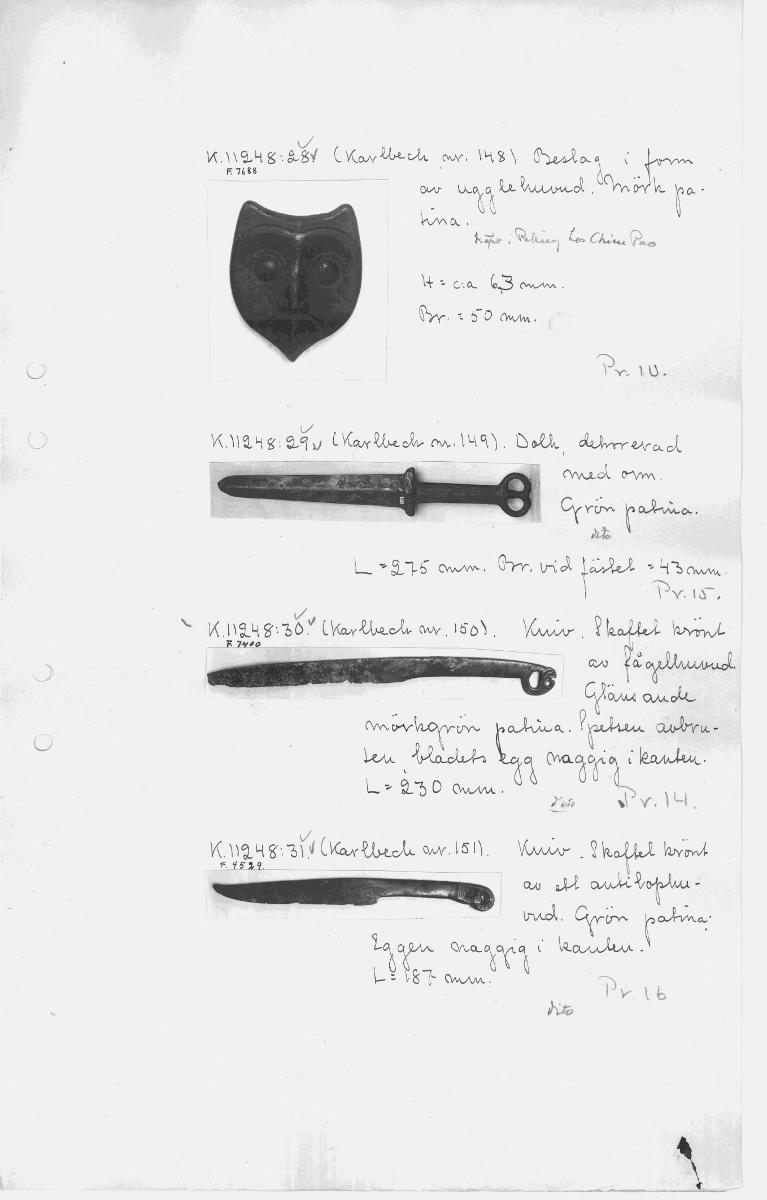 K.11248:28. (Karlbeck nr. 148) Beslag i form
F. 7688
av ugglehuvud. Mörk pa-
tina.
Köpt i Peking
H = c:a 63 mm.
Br. = 50 mm.
Pr. 10.
K.11248:29. (Karlbeck nr. 149). Dolk, dekorerad
med orm.
Grön patina.
dito
L = 275 mm. Br. vid fästet = 43 mm.
Pr. 15.
K.11248:30. (Karlbeck nr. 150). Kniv. Skaftet krönt
F. 7400
av fågelhuvud.
Glänsande
mörkgrön patina. Spetsen avbru-
ten, bladets egg naggig i kanten.
L = 230 mm.
dito
Pr. 14.
K.11248:31. (Karlbeck nr. 151). Kniv. Skaftet krönt
F. 4529.
av ett antilophu-
vud. Grön patina.
Eggen naggig i kanten.
L = 187 mm.
Pr. 16
dito